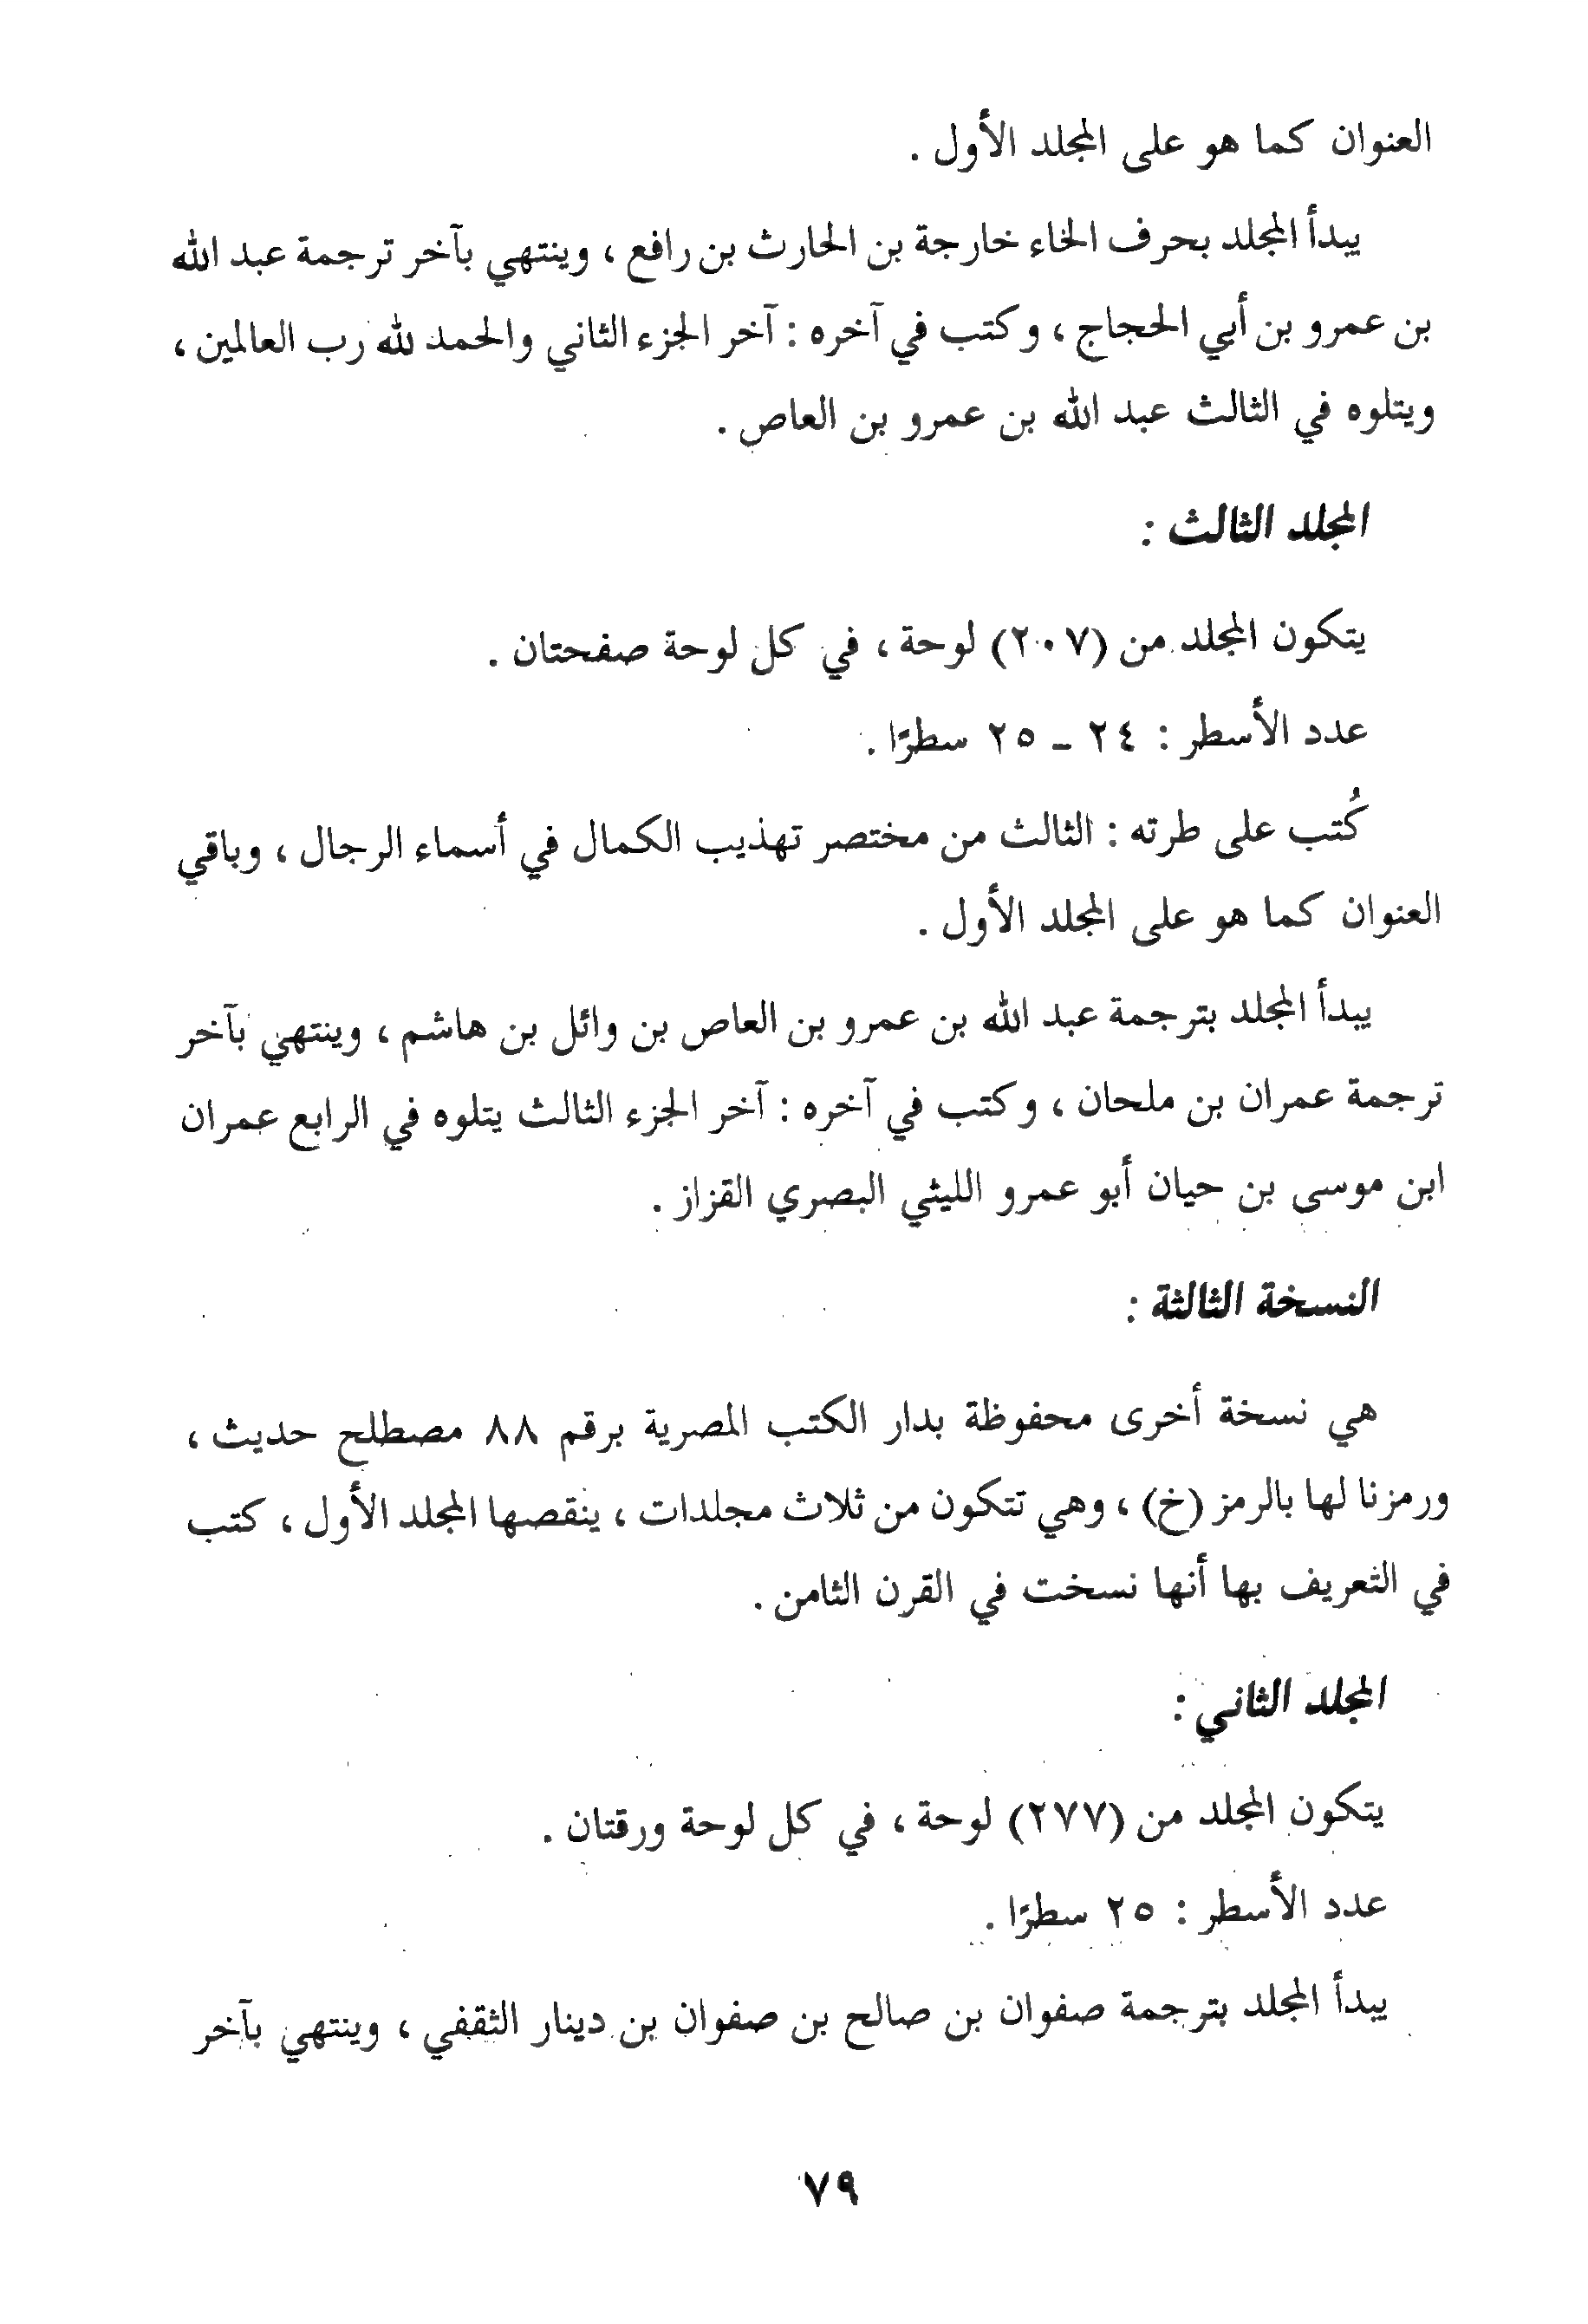 العنوان كما هو على المجلد الأول .
يبدأ المجلد بحرف الخاء خارجة بن الحارث بن رافع ، وينتهي بآخر ترجمة عبد الله
بن عمرو بن أبي الحجاج ، وكتب في آخره : آخر الجزء الثاني والحمد لله رب العالمين ،
ويتلوه في الثالث عبد الله بن عمرو بن العاص .
المجلد الثالث :
يتكون المجلد من (٢٠٧) لوحة ، في كل لوحة صفحتان .
عدد الأسطر : ٢٤ - ٢٥ سطرًا .
كُتب على طرته : الثالث من مختصر تهذيب الكمال في أسماء الرجال ، وباقي
العنوان كما هو على المجلد الأول .
يبدأ المجلد بترجمة عبد الله بن عمرو بن العاص بن وائل بن هاشم ، وينتهي بآخر
ترجمة عمران بن ملحان ، وكتب في آخره : آخر الجزء الثالث يتلوه في الرابع عمران
ابن موسى بن حيان أبو عمرو الليثي البصري القزاز .
النسخة الثالثة :
هي نسخة أخرى محفوظة بدار الكتب المصرية برقم ٨٨ مصطلح حديث ،
ورمزنا لها بالرمز (خ) ، وهي تتكون من ثلاث مجلدات ، ينقصها المجلد الأول ، كتب
في التعريف بها أنها نسخت في القرن الثامن .
المجلد الثاني :
يتكون المجلد من (٢٧٧) لوحة ، في كل لوحة ورقتان .
عدد الأسطر : ٢٥ سطرًا .
يبدأ المجلد بترجمة صفوان بن صالح بن صفوان بن دينار الثقفي ، وينتهي بآخر
٧٩